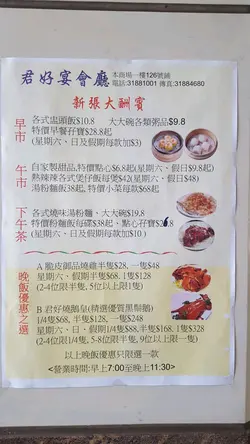 君好宴會廳 本商場一樓126號舖
電話:31881001 傳真:31884680
新張大酬賓
早市
各式盅頭飯$10.8 大大碗各類粥品$9.8
特價早餐孖寶$28.8起
(星期六、日及假期每款加$3)
午市
自家製甜品,特價點心$6.8起(星期六、假日$9.8起)
熱辣辣各式煲仔飯每煲$42(星期六、假日$48)
湯粉麵飯38起, 特價小菜每款$68起
下午茶
各式燒味湯粉麵、大大碗$19.8
特價粉麵飯每碟$38起、點心孖寶
(星期六、日及假期每款加$10 )
晚飯優惠之選
A 脆皮御品燒雞半隻$28. 一隻$48
星期六、日、假期半隻$68.1隻$128
(2-4位限半隻, 5位以上限1隻)
B 君好燒鵝皇(精選優質黑鬃鵝)
1/4隻$68, 半隻$128, 一隻$248
星期六、日、假期1/4隻$88,半隻$168.1隻$328
(2-4位限1/4隻, 5-8位限半隻, 9位以上限一隻)
以上晚飯優惠只限選一款
<營業時間:早上7:00至晚上11:30>